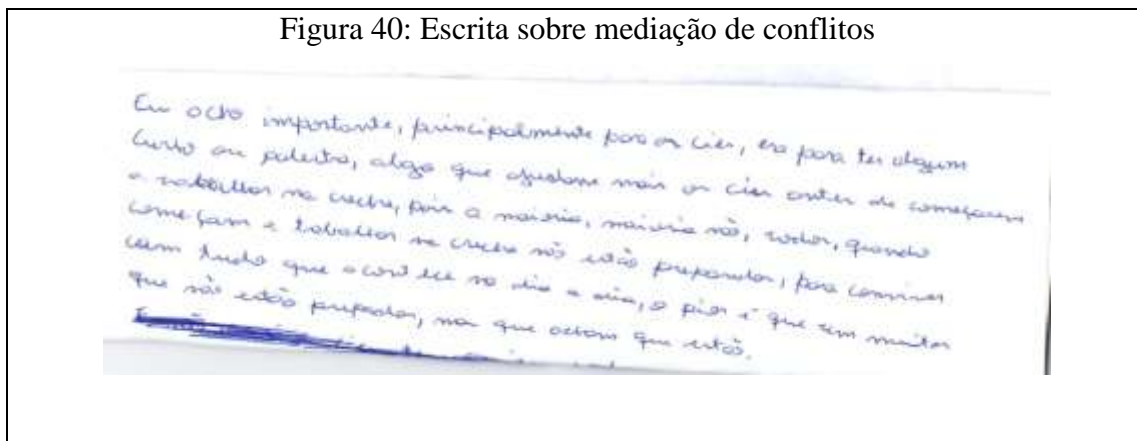 Figura 40: Escrita sobre mediação de conflitos
Eu acho importante, principalmente para os cies, era para ter algum
curso ou palestra, algo que ajudasse mais os cies antes de começarem
a trabalhar na creche, pois a maioria, maioria não, todos, quando
começam a trabalhar na creche não estão preparados, para conviver
com tudo que acontece no dia a dia, o pior é que tem muitos
que não estão preparados, mas que acham que estão.